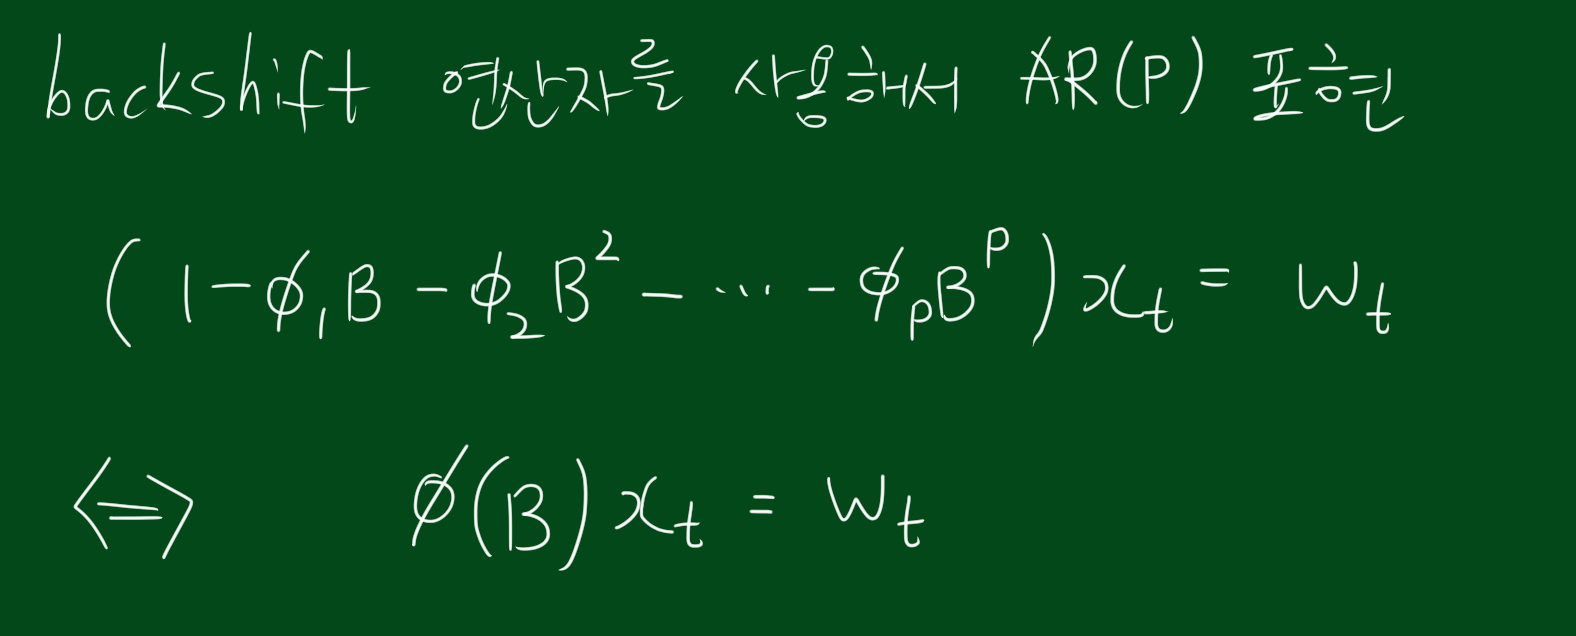 backshift 연산자를 사용해서 AR(P) 표현
(1-ϕ₁B - ϕ₂B² - ··· - ϕₚBᵖ)xₜ = wₜ
⇔ ϕ(B)xₜ = wₜ